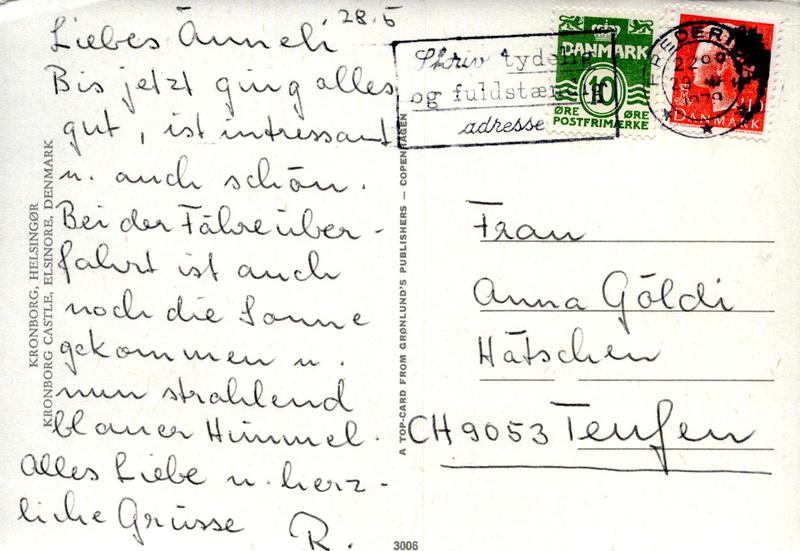 28.5
Liebes Änneli
Bis jetzt ging alles
gut, ist intressant
u. auch schön.
Bei der Fähreüber-
fahrt ist auch
noch die Sonne
gekommen u.
nun strahlend
blauer Himmel.
Alles Liebe u. herz-
liche Grüsse
R.
KRONBORG, HELSINGØR
KRONBORG CASTLE, ELSINORE, DENMARK
A TOP-CARD FROM GRØNLUND'S PUBLISHERS – COPENHAGEN
3006
Skriv tydelig
og fuldstændig
adresse
DANMARK
10
ØRE ØRE
POSTFRIMÆRKE
DANMARK
Frau
Anna Göldi
Hätschen
CH 9053 Teufen